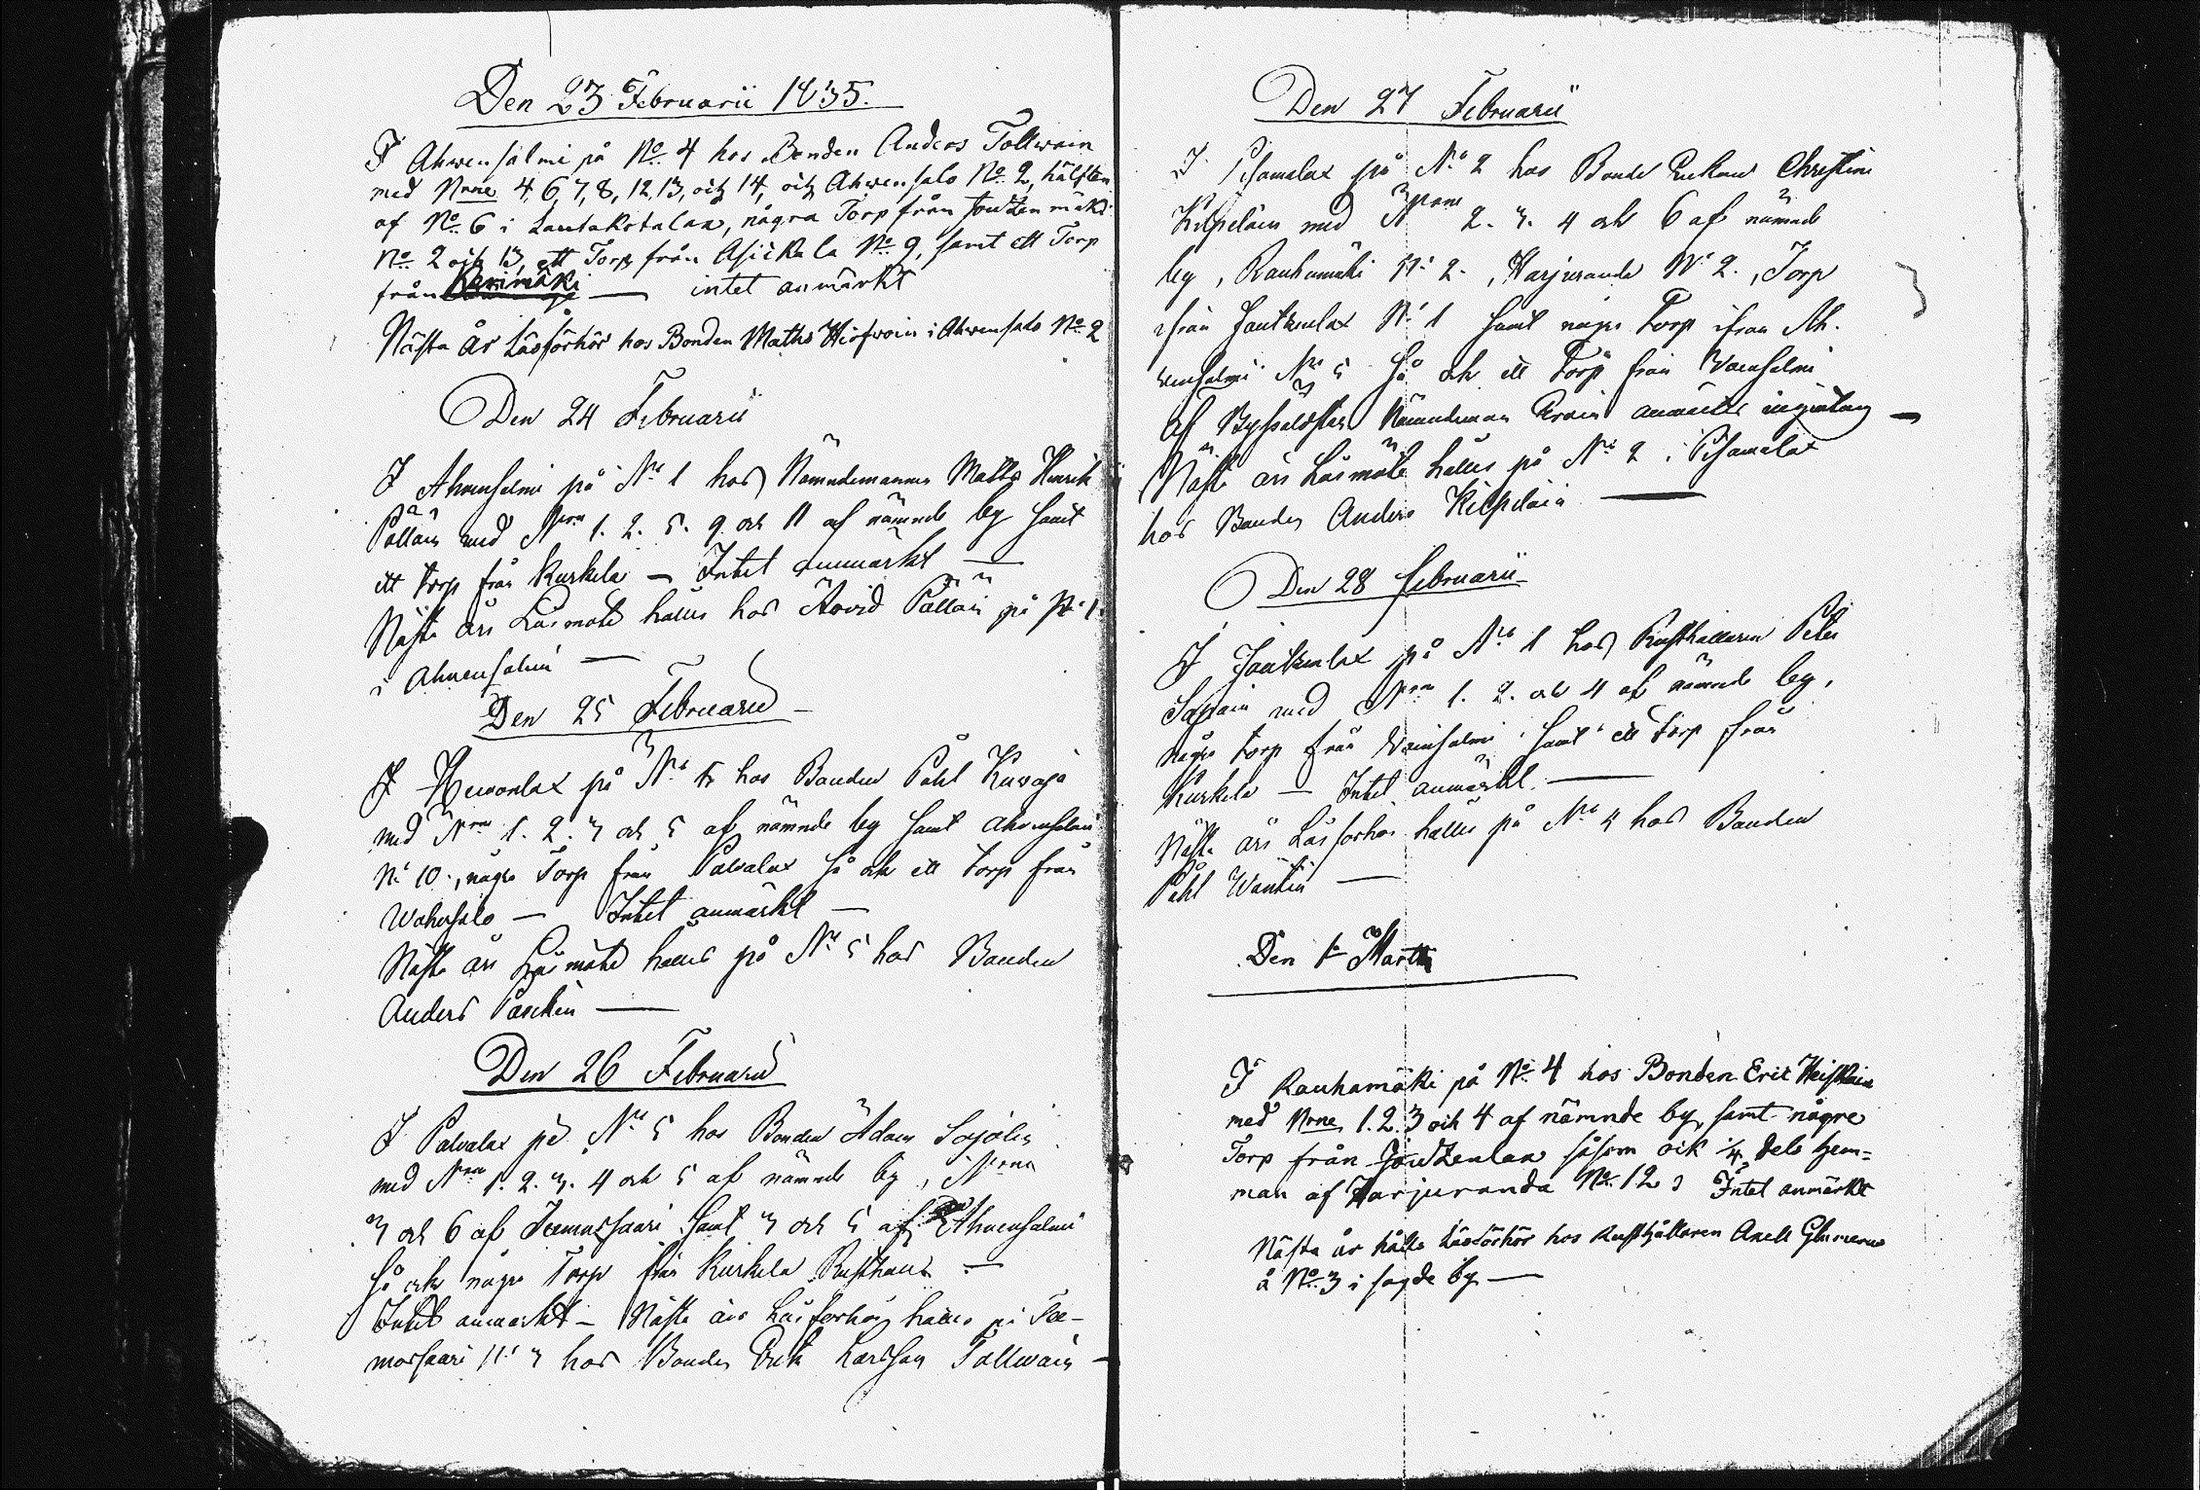 Den 23 Februarii 1835.
I Ahwensalmi på No 4 hos Bonden Anders Tollwain
med Nrne 4, 6, 7, 8, 12, 13, och 14, och Ahwensalo No 2, hälften
af No 6 i Lautakotalax, några Torp från Joutzenmäki
No 2 och 13, ett Torp från Asickala No 9, samt ett Torp
från Kerimäki — intet anmärkt
Nästa År Läsförhör hos Bonden Maths Hirfwoin i Ahwensalo No 2
Den 24 Februarii
I Ahvensalmi på No 1 hos Nämndemannen Matts Henrik
Pälläin med Nrne 1. 2. 5. 9 och 11 af nämnde by samt
ett torp från Kurkela — Intet anmärkt —
Näste års Läsmöte hålles hos Arvid Pälläin på No 1.
i Ahvensalmi —
Den 25 Februarii
I Heinonlax på No hos Bonden Påhl Kuwaja
med Nrne 1. 2. 3 och 5 af nämnde by samt Ahvensalmi
No 10., några Torp från Palvalax så ock ett torp från
Wahersalo — Intet anmärkt —
Näste års Läsmöte hålles på No 5 hos Bonden
Anders Paschin —
Den 26 Februarii
I Palvalax på No 5 hos Bonden Adam Sojolin
med Nrne 1. 2. 3. 4 och 5 af nämnde by, Nrne
3 och 6 af Temussaari samt 3 och 5 af Ahvensalmi
så ock några Torp från Kurkela Rusthåll —
Intet anmärkt — Näste års Läsförhör hålles på Te-
mossaari No 3 hos Bonden Erik Larsson Tallwain —
Den 27 Februarii
I Pisamalax på No 2 hos Bonde Enkan Christine
Kilpeläin med Nrne 2. 3. 4 och 6 af nämnde
by, Rauhamäki No 2., Harjuranda No 2., Torp
ifrån Jautzenlax No 1 samt några Torp ifrån Ah-
vensalmi No 5 så ock ett Torp från Wainsalmi
Af Byssåldsten Nämndeman anmältes ingenting —
Näste års Läsmöte hålles på No 2 i Pisamalax
hos Bonden Anders Kilpeläin —
Den 28 Februarii
I Jautzenlax på No 1 hos Rusthållaren Peter
med Nrne 1. 2. och 4 af nämnde by,
några torp från Wainsalmi samt ett torp från
Kurkela — Intet anmärkt. —
Näste års Läsförhör hålles på No 4 hos Bonden
Påhl Wäntin —
Den 1 Martii
I Rauhamäki på No 4 hos Bonden Eric Heiskain
med Nrne 1. 2. 3 och 4 af nämnde by, samt några
Torp från Joutzenlax såsom ock 1/4 dels hem=
man af Harjuranda No 12, Intet anmärkt
Nästa år hålls Läsförhör hos Rusthållaren Axell
å No 3 i sagde by —